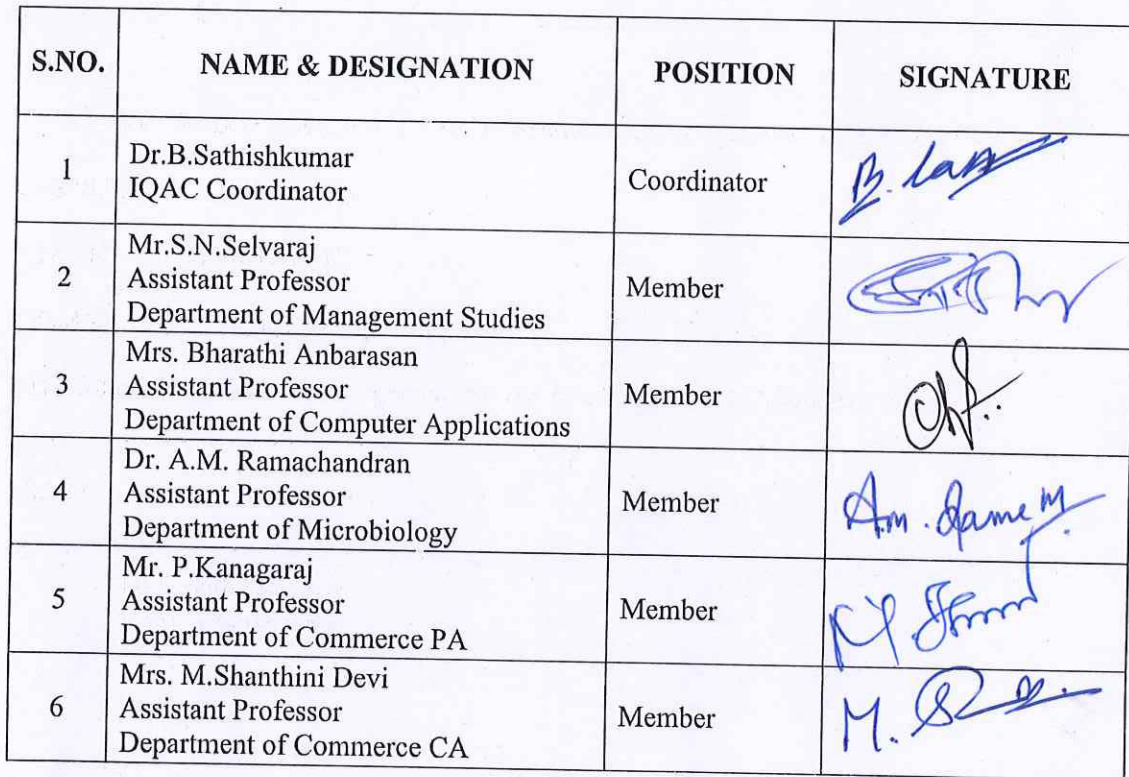 S.NO. NAME & DESIGNATION POSITION SIGNATURE
1 Dr.B.Sathishkumar
IQAC Coordinator Coordinator
2 Mr.S.N.Selvaraj
Assistant Professor Member
Department of Management Studies
3 Mrs. Bharathi Anbarasan
Assistant Professor Member
Department of Computer Applications
4 Dr. A.M. Ramachandran
Assistant Professor Member
Department of Microbiology
5 Mr. P.Kanagaraj
Assistant Professor Member
Department of Commerce PA
6 Mrs. M.Shanthini Devi
Assistant Professor Member
Department of Commerce CA